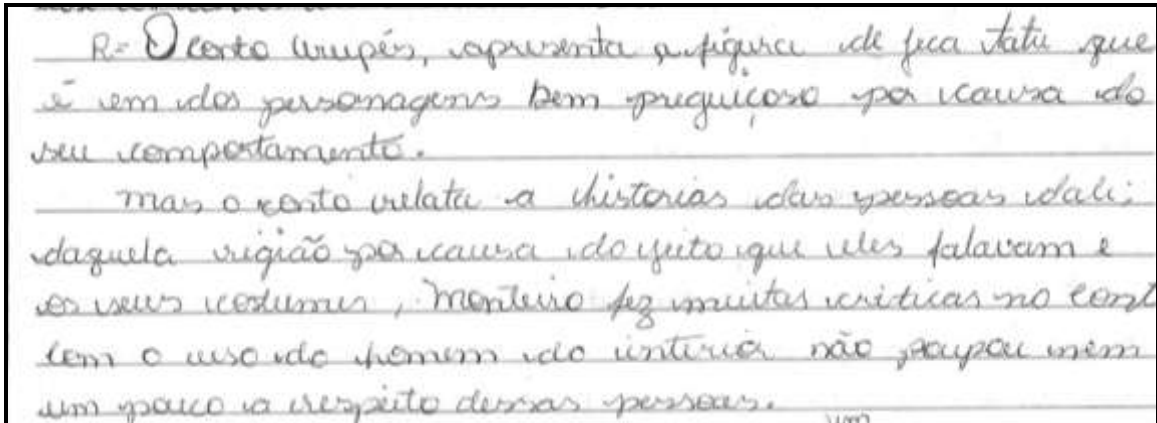 R= O conto urupês, apresenta a figura de jeca tatu que
é um dos personagens bem preguiçoso por causa do
seu comportamento.
mas o conto relata a historias das pessoas dali;
daquela rigião por causa do jeito que eles falavam e
os seus costumes, monteiro fez muitas criticas no cont
com o uso do homem do interior não poupou nem
um pouco a respeito dessas pessoas.
um